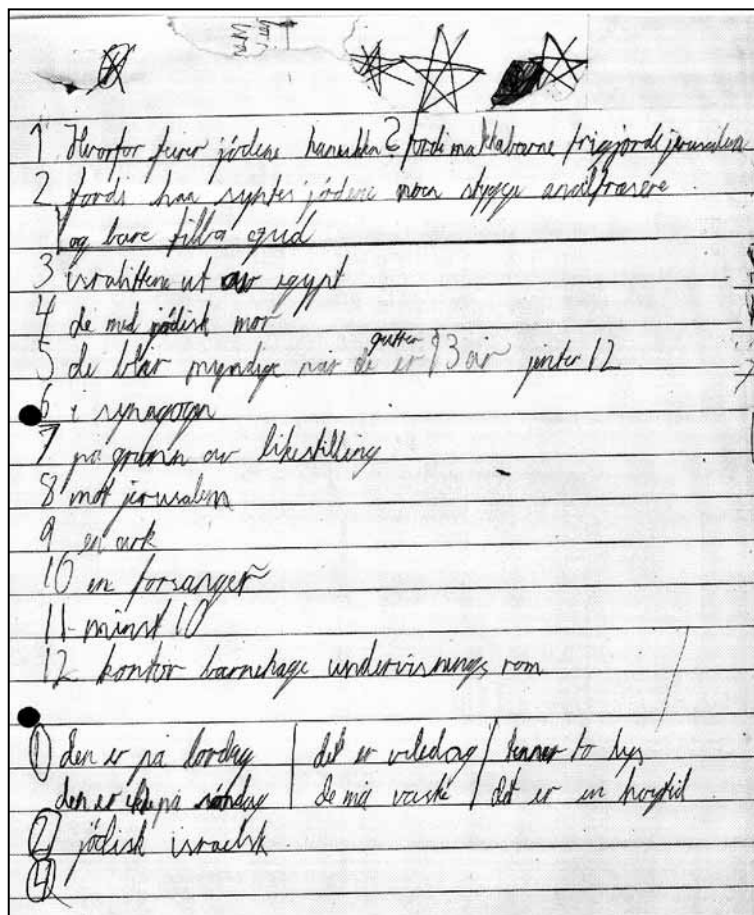 1 Hvorfor feirer jødene hanukka? fordi makkabærne frigjorde jerusalem
2 fordi han syntes jødene noen stygge
og bare tilba gud
3 isralittene ut av egypt
4 de med jødisk mor
5 de blir myndige når de gutter er 13 år jenter 12
6 i synagogen
7 på grunn av likestilling
8 mot jerusalem
9 en ark
10 en forsanger
11 minst 10
12 kontor barnehage undervisnings rom
1 den er på lørdag | det er viledag | tenner to lys
den er ikke på søndag | de må vaske | det er en høytid
2 jødisk israelsk
4